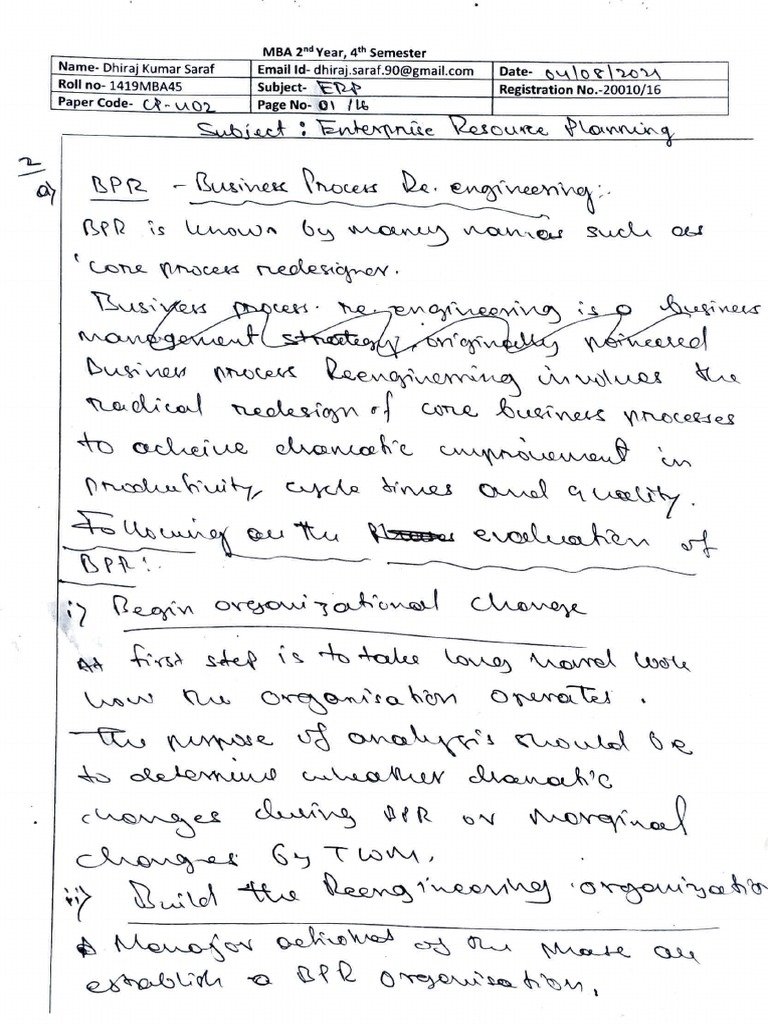 MBA 2nd Year, 4th Semester
Name- Dhiraj Kumar Saraf Email Id- dhiraj.saraf.90@gmail.com Date- 04/08/2021
Roll no- 1419MBA45 Subject- ERP Registration No.-20010/16
Paper Code- CP-402 Page No- 01 /16
Subject : Enterprise Resource Planning
2/a) BPR - Business Process Re. engineering:-
BPR is known by many names such as
'core process redesigner.
Business process re-engineering is a business
management strategy, originally poineered
Business process Reengineering involves the
radical redesign of core business processes
to acheive dramatic improvement in
productivity, cycle times and quality.
Following are the evaluation of
BPR:-
i) Begin organizational change
first step is to take long hard look
how the organisation operates.
The purpose of analysis should be
to determine whether dramatic
changes during BPR or marginal
changes by TQM.
ii) Build the Reengineering organization
of the phase are
establish a BPR organisation.